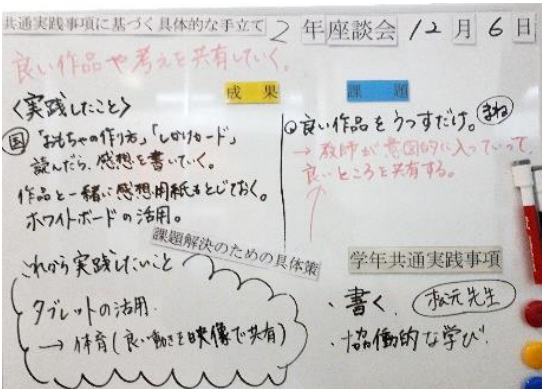 共通実践事項に基づく具体的な手立て 2 年座談会 12 月 6 日
良い作品や考えを共有していく。
成 果
<実践したこと>
国 「おもちゃの作り方」「しかけカード」
読んだら、感想を書いていく。
作品と一緒に感想用紙もとじておく。
ホワイトボードの活用。
課 題
良い作品をうつすだけ。まね
→ 教師が意図的に入っていって、
良いところを共有する。
課題解決のための具体策
これから実践したいこと
タブレットの活用.
→ 体育(良い動きを映像で共有)
学年共通実践事項
・書く. 松元先生
・協働的な学び